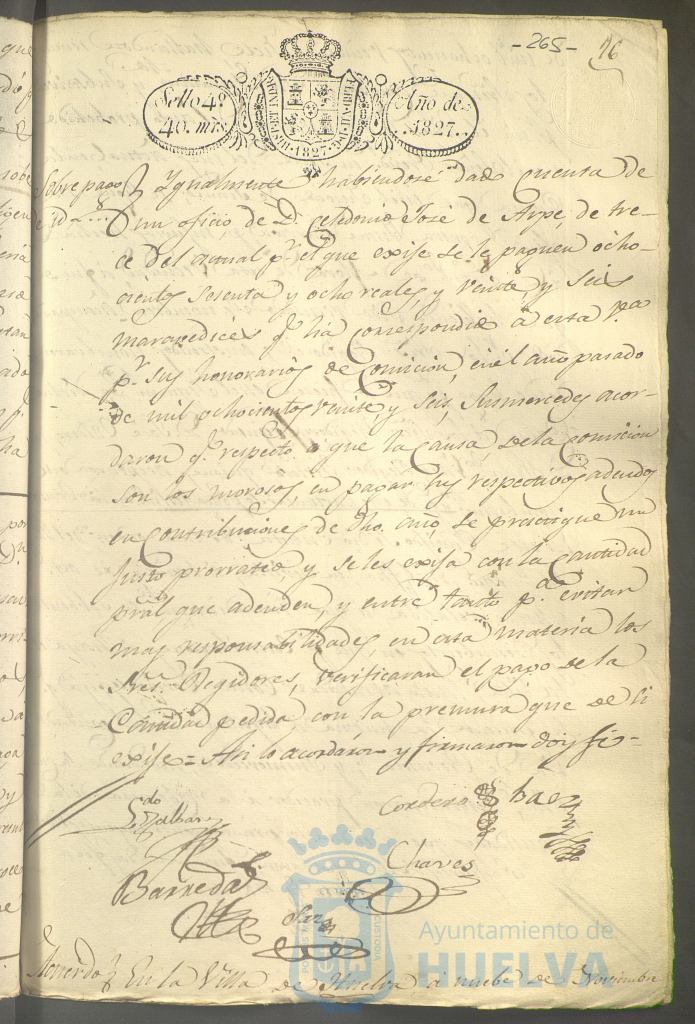 -265- 76
Sello 4º
40. mrs.
HISP. ET IND. R.
FERD. VII. D. G.
1827
Año de
1827.
Sobre pago
Ygualmente habiendose dado cuenta de
un oficio de D. Celedonio José de Arpe, de tre-
ce del actual pr. el que exije se le paguen ocho-
cientos sesenta y ocho reales y veinte y seis
maravedices q. ha correspondido à esta Va
pr. sus honorarios de Comicion, en el año pasado
de mil ochocientos veinte y seis, Sus mercedes acor-
daron q. respecto a que la causa, de la comicion
son los morosos, en pagar sus respectivos adeudos
en Contribuciones de dho. año, se practique un
justo prorrateo y se les exija con la Cantidad
pral que adeuden, y entre tanto pa. evitar
mas responsabilidades, en esta materia los
Sres. Regidores, verificaran el pago de la
Cantidad pedida con la premura que se li
exije = Asi lo acordaron y firmaron doy fe-
Cordero Baez
Chaves
Barreda
Saz
Ayuntamiento de
HUELVA
Acuerdo En la Villa de Huelva, à nuebe de Noviembre